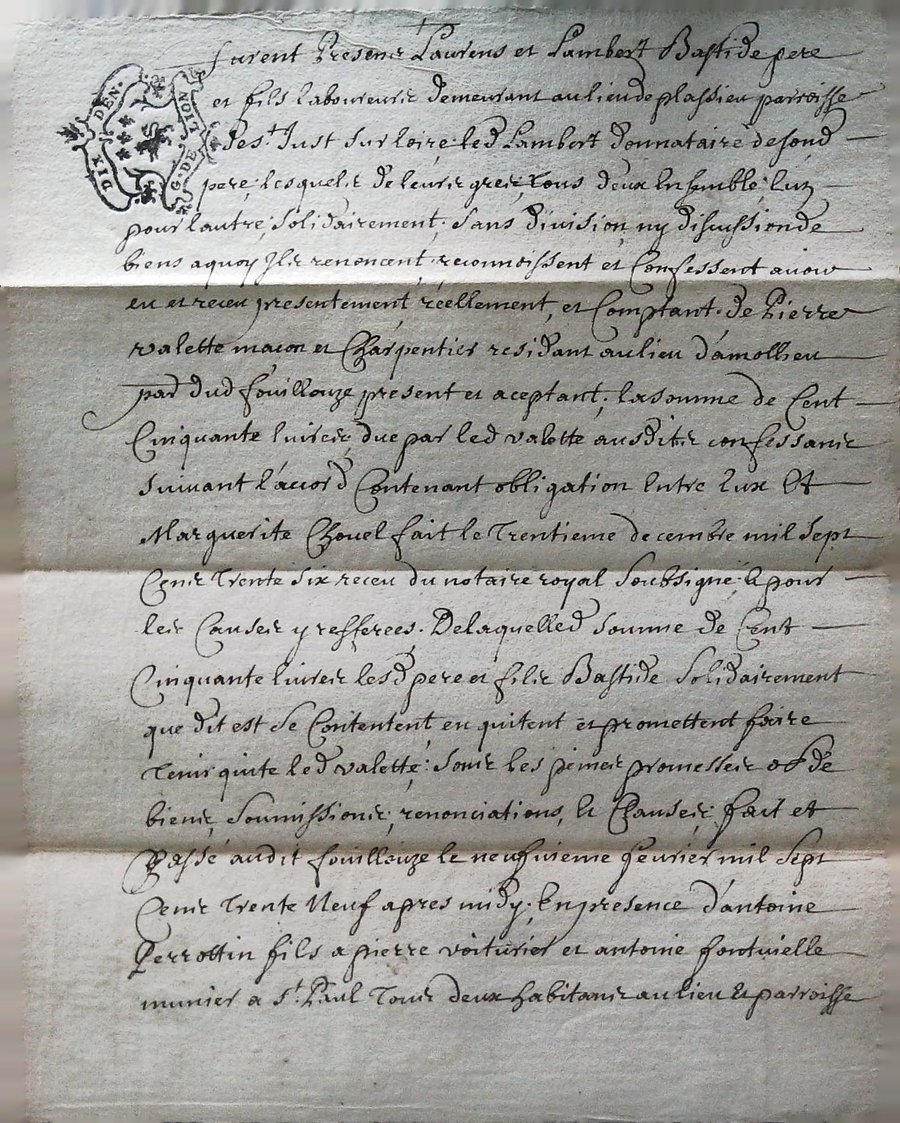 DIX DEN.
G. DE NOIT
furent Presens Laurens et Lambert Bastide pere
et fils laboureurs demeurant au lieu de plassieu parroisse
de st. Just sur loire led Lambert donnataire desond
pere, lesquels de leurs grés, tous deux Ensemble, lun
pour lautre, solidairement, sans division, ny discussion de
biens a quoy Ils renoncent, reconnoissent et Confessent avoir
eu et receu presentement, réellement, et Comptant de Pierre
valette macon et Charpentier residant au lieu d'amollieu
parr dud fouillouze present et aceptant, la somme de Cent
Cinquante livres due par led valette ausdits confessans
suivant l'accord Contenant obligation Entre Eux Et
Marguerite Chovel fait le Trentieme decembre mil sept
Cens Trente six receu du notaire royal soubsigné & pour
les Causes y refferées. De laquelled somme de Cent
Cinquante livres lesd pere et fils Bastide solidairement
que dit est se Contentent, en quitent et promettent faire
Tenir quite led valette, sous les peines promesses ob de
biens, soumissions, renonciations, & Clauses, fait et
Passé audit fouillouze le neufvieme fevrier mil sept
Cens Trente Neuf apres midy, En presence d'antoine
Perrottin fils a pierre voiturier et antoine fontvielle
munier a st. Paul Tous deux habitans au lieu & parroisse